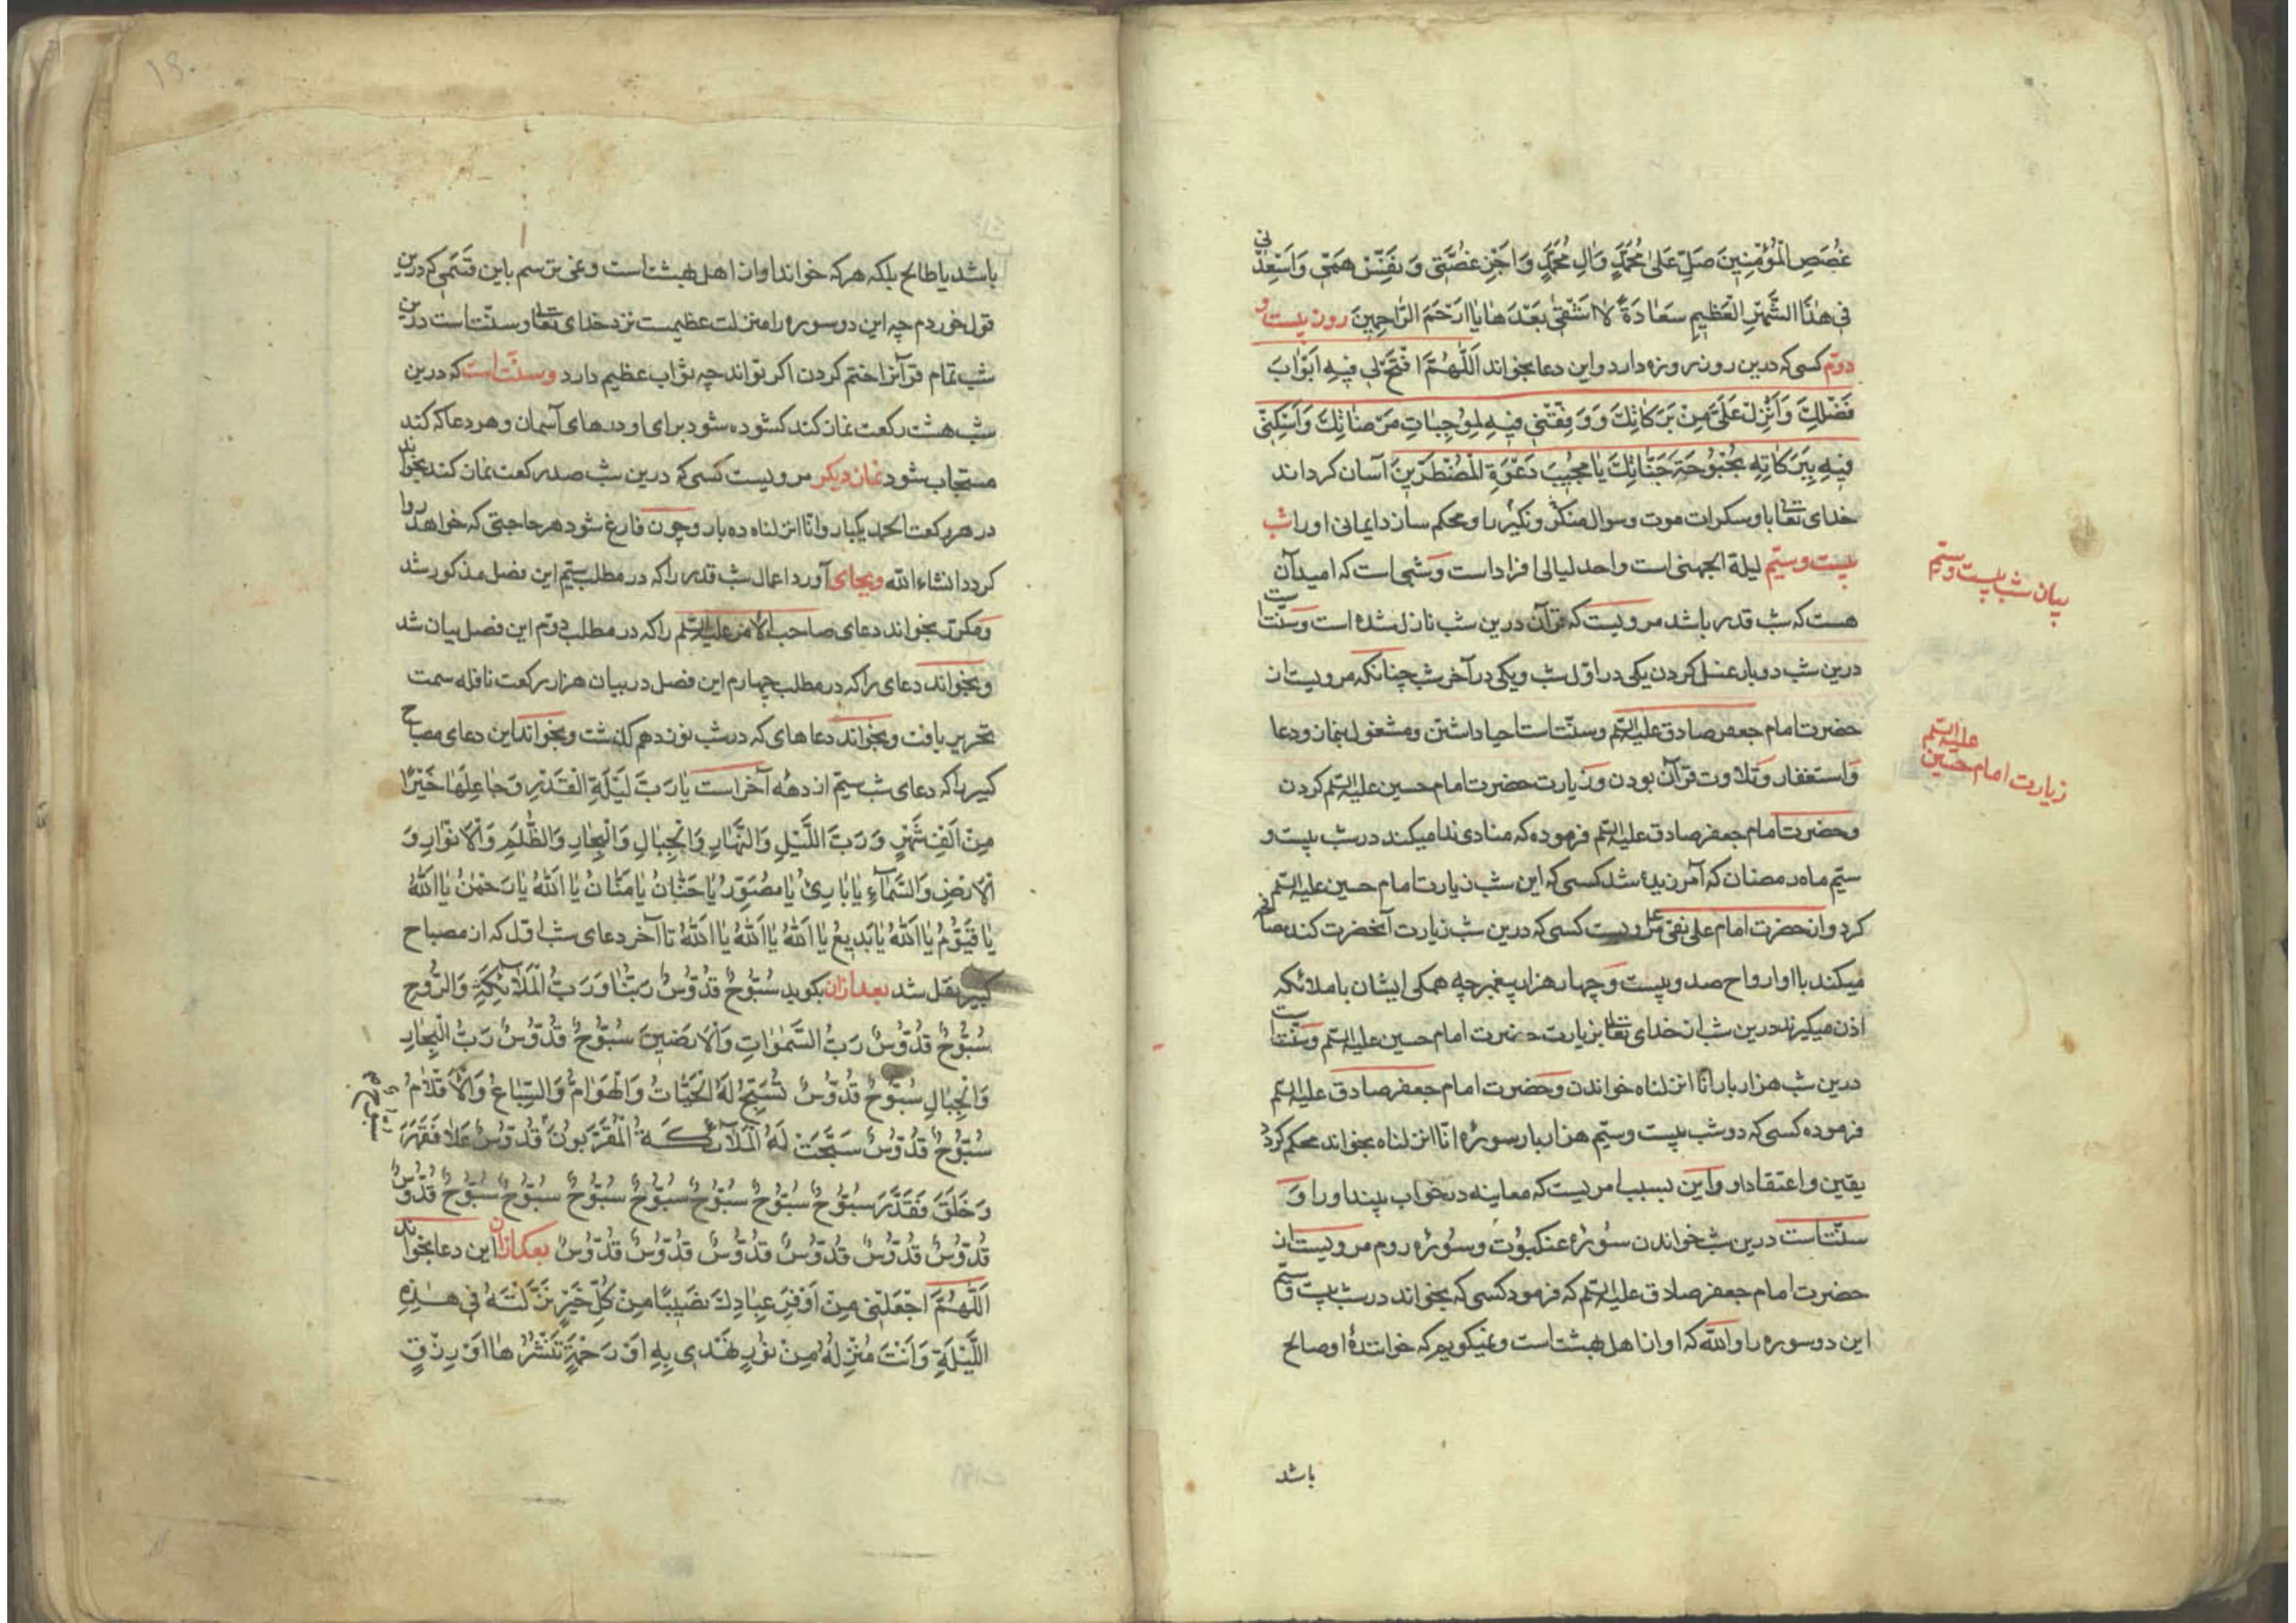 غُصَصِ الْمُؤْمِنِينَ صَلِّ عَلىٰ مُحَمَّدٍ وَاٰلِ مُحَمَّدٍ وَاَجْزِ غُصَّتِی وَنَفِّسْ هَمِّی وَاَسْعِدْنی
فِی هٰذَا الشَّهْرِ الْعَظِیمِ سَعَادَةً لَا اَشْقىٰ بَعْدَهَا یٰا اَرْحَمَ الرَّاحِمِینَ روز بیست و
دوّم کسی که درین روز روزه دارد و این دعا بخواند اَللّٰهُمَّ افْتَحْ لِی فِیهِ اَبْوَابَ
فَضْلِكَ وَاَنْزِلْ عَلَیَّ مِنْ بَرَكَاتِكَ وَوَفِّقْنِی فِیهِ لِمُوجِبَاتِ مَرْضَاتِكَ وَاَسْكِنِّی
فِیهِ بِبَرَكَاتِهِ بُحْبُوحَةَ جَنَّاتِكَ یَا مُجِیبَ دَعْوَةِ الْمُضْطَرِّینَ آسان گرداند
خدای تعالی باو سکرات موت و سوال منکر و نکیر را و محکم سازد ایمانی او را شب
بیست و سیّم لیلة الجهنی است و احد لیالی افراد است و شبی است که امید آن
هست که شب قدر باشد مرویست که قرآن درین شب نازل شده است و سنّت است
درین شب دوبار غسل کردن یکی در اوّل شب و یکی در آخر شب چنانکه مرویست از
حضرت امام جعفر صادق علیه السّلم و سنّت است احیا داشتن و مشغول بنماز و دعا
و استغفار و تلاوت قرآن بودن و زیارت حضرت امام حسین علیه السّلم کردن
و حضرت امام جعفر صادق علیه السّلم فرموده که منادی ندا میکند در شب بیست و
سیّم ماه رمضان که آمرزیده شد کسی که این شب زیارت امام حسین علیه السّلم
کرد و از حضرت امام علی نقی ع مرویست کسی که درین شب زیارت آنحضرت کند مصافحه
میکند با او ارواح صد و بیست و چهار هزار پیغمبر چه همگی ایشان با ملائکه
اذن میگیرند درین شب از خدای تعالی بزیارت حضرت امام حسین علیه السّلم و سنّت است
درین شب هزار بار انّا انزلناه خواندن و حضرت امام جعفر صادق علیه السّلم
فرموده کسی که در شب بیست و سیّم هزار بار سورهٔ انّا انزلناه بخواند محکم گردد
یقین و اعتقاد او و این بسبب امریست که معاینه در خواب بیند او را و
سنّت است درین شب خواندن سورهٔ عنکبوت و سورهٔ روم مرویست از
حضرت امام جعفر صادق علیه السّلم که فرمود کسی که بخواند در شب بیست و سیّم
این دو سوره را والله که او از اهل بهشت است و نمیگویم که خوانندهٔ او صالح
باشد
بیان شب بیست و سیّم
زیارت امام حسین علیه السّلم
باشد یا طالح بلکه هر که خواند او از اهل بهشت است و نمی ترسم باین قسمی که درین
قول خوردم چه این دو سوره را منزلت عظیمست نزد خدای تعالی و سنّت است درین
شب تمام قرآنرا ختم کردن اکر تواند چه ثواب عظیم دارد و سنّت است که درین
شب هشت رکعت نماز کند کشوده شود برای او درهای آسمان و هر دعا که کند
مستجاب شود نماز دیکر مرویست کسی که درین شب صد رکعت نماز کند بخواند
در هر رکعت الحمد یکبار و انّا انزلناه ده بار و چون فارغ شود هر حاجتی که خواهد روا
کردد انشاء الله و بجای آورد اعمال شب قدر را که در مطلب سیّم این فصل مذکور شد
و مکرّر بخواند دعای صاحب الامر علیه السّلم را که در مطلب دوّم این فصل بیان شد
و بخواند دعای را که در مطلب چهارم این فصل در بیان هزار رکعت نافله سمت
تحریر یافت و بخواند دعاهای که در شب نوزدهم کذشت و بخواند این دعای مصباح
کبیر را که دعای شب سیّم از دههٔ آخر است یٰا رَبَّ لَیْلَةِ الْقَدْرِ وَجَاعِلَهَا خَیْرًا
مِنْ اَلْفِ شَهْرٍ وَرَبَّ اللَّیْلِ وَالنَّهَارِ وَالْجِبَالِ وَالْبِحَارِ وَالظُّلَمِ وَالْاَنْوَارِ وَ
الْاَرْضِ وَالسَّمَآءِ یٰا بَارِئُ یٰا مُصَوِّرُ یٰا حَنَّانُ یٰا مَنَّانُ یٰا اَللّٰهُ یٰا رَحْمٰنُ یٰا اَللّٰهُ
یٰا قَیُّومُ یٰا اَللّٰهُ یٰا بَدِیعُ یٰا اَللّٰهُ یٰا اَللّٰهُ یٰا اَللّٰهُ تا آخر دعای شب اوّل که از مصباح
کبیر نقل شد بعد ازان بکوید سُبُّوحٌ قُدُّوسٌ رَبُّنَا وَرَبُّ الْمَلَائِكَةِ وَالرُّوحِ
سُبُّوحٌ قُدُّوسٌ رَبُّ السَّمٰوٰاتِ وَالْاَرَضِینَ سُبُّوحٌ قُدُّوسٌ رَبُّ الْبِحَارِ
وَالْجِبَالِ سُبُّوحٌ قُدُّوسٌ تُسَبِّحُ لَهُ الْحِیتَانُ وَالْهَوَامُّ وَالسِّبَاعُ وَالْاٰكَامُ
سُبُّوحٌ قُدُّوسٌ سَبَّحَتْ لَهُ الْمَلَائِكَةُ الْمُقَرَّبُونَ قُدُّوسٌ عَلَا فَقَهَرَ
وَخَلَقَ فَقَدَّرَ سُبُّوحٌ سُبُّوحٌ سُبُّوحٌ سُبُّوحٌ سُبُّوحٌ سُبُّوحٌ سُبُّوحٌ قُدُّوسٌ
قُدُّوسٌ قُدُّوسٌ قُدُّوسٌ قُدُّوسٌ قُدُّوسٌ قُدُّوسٌ بعد ازان این دعا بخواند
اَللّٰهُمَّ اجْعَلْنِی مِنْ اَوْفَرِ عِبَادِكَ نَصِیبًا مِنْ كُلِّ خَیْرٍ نَزَّلْتَهُ فِی هٰذِهِ
اللَّیْلَةِ وَاَنْتَ مُنْزِلُهُ مِنْ نُورٍ تَهْدِی بِهِ اَوْ رَحْمَةٍ تَنْشُرُهَا اَوْ رِزْقٍ